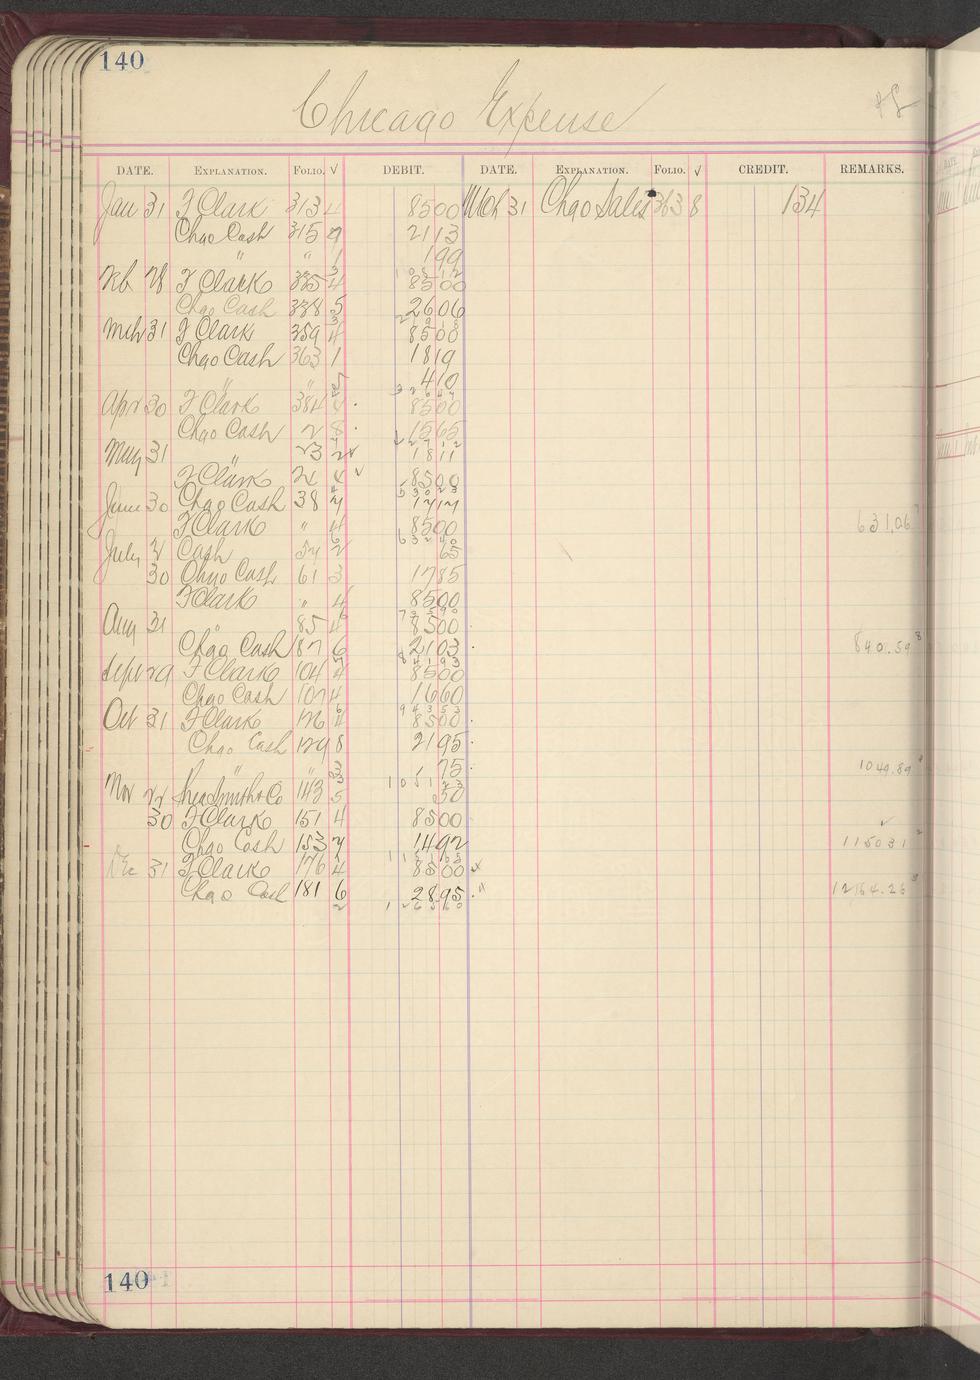 140
Chicago Expense
DATE. EXPLANATION. FOLIO. √ DEBIT. DATE. EXPLANATION. FOLIO. √ CREDIT. REMARKS.
Jan 31 F Clark 313 4 8500 Mch 31 Chgo Sales 363 8 134
Chgo Cash 315 9 2113
" " 1 199
Feb 28 F Clark 335 4 8500
Chgo Cash 338 5 2606
Mch 31 F Clark 359 4 8500
Chgo Cash 363 1 1819
" " 410
Apr 30 F Clark 384 4 8500
Chgo Cash 2 8 1565
May 31 " 23 2 1811
F Clark 24 4 8500
June 30 Chgo Cash 38 7 1717
F Clark " 4 8500 631.06
July 2 Cash 54 2 65
30 Chgo Cash 61 3 1785
F Clark " 4 8500
Aug 31 " 85 4 8500
Chgo Cash 87 6 2103 840.59
Sept 29 F Clark 104 4 8500
Chgo Cash 107 4 1660
Oct 31 F Clark 126 4 8500
Chgo Cash 129 8 2195
" " 75 1049.89
Nov 22 Smith & Co 143 5 50
30 F Clark 151 4 8500
Chgo Cash 153 7 1492 115031
Dec 31 F Clark 176 4 8500
Chgo Cash 181 6 2895 1264.26
140